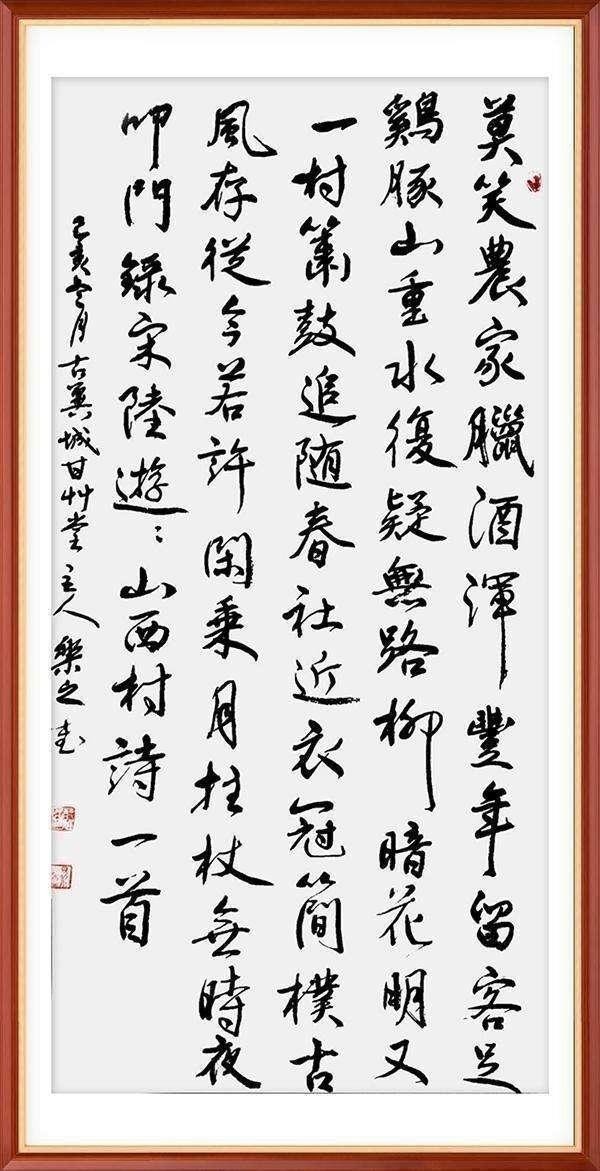 莫笑農家臘酒渾豐年留客足
鷄豚山重水復疑無路柳暗花明又
一村簫鼓追随春社近衣冠簡樸古
風存從今若許閑乘月拄杖無時夜
叩門錄宋陸遊〻山西村詩一首
己亥冬月古城甘艸堂主人樂之書